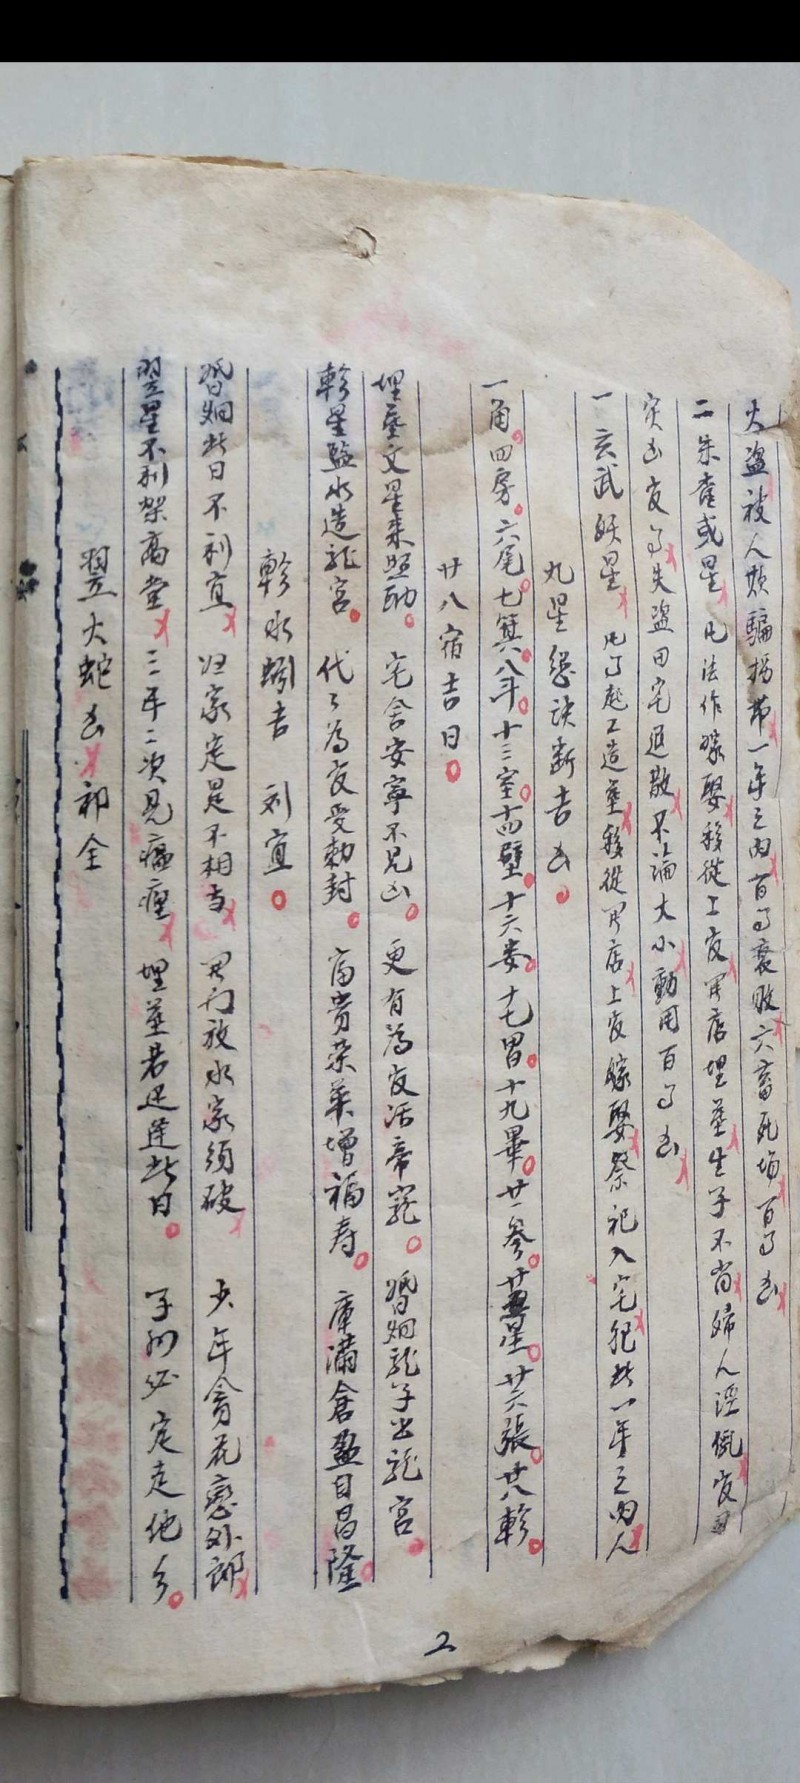 火盜被人欺騙拐帶一年之内百事衰敗六畜死塲百事凶
二朱雀或星 凡法作嫁娶移徙上官開店埋葬生子不肖婦人淫
突凶官事失盜田宅退散不論大小動用百事凶
一玄武妖星 凡事起工造葬移徙開店上官嫁娶祭祀入宅犯此一年之内人
九星總訣断吉凶
一角四房六尾七箕八斗十三室十四壁十六婁十七胃十九畢廿一參星廿六張廿八軫
廿八宿吉日
埋葬文星来照助 宅舍安寧不見凶 更有為官沾帝寵 婚姻龍子出龍宮
軫星臨水造龍宮 代々為官受勅封 富貴荣華增福寿 庫滿倉盈自昌隆
軫水蚓吉 刘直
婚姻此日不利宜 归家定是不相当 開門放水家須破 少年貪花戀外郎
翌星不利架高堂 三年二次見瘟癀 埋葬若还逢此日 子孙必定走他乡
翌火蛇凶 邳仝
2